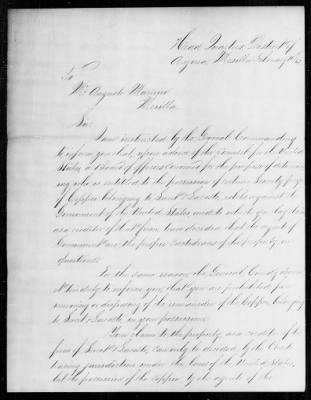 Head Quarters District of
Arizona Mesilla February 11/63
To
Mr. Auguste
Mesilla
Sir:
I am instructed by the General Commanding
to inform you that, upon advice of the Counsel for the United
States, a Board of Officers convened for the purpose of determin-
ing who is entitled to the possession of certain Seventy pigs
of Copper belonging to & Lacoste, as between the
Government of the United States, and to which you lay claim
as creditor of that firm, have decided that the agents of
Government are the proper custodians of the property in
question.
For the same reasons the General Comdg deems
it his duty to inform you, that you are prohibited from
removing or disposing of the remainder of the Copper belonging
to & Lacoste, in your possession.
Your claim to the property, as a creditor of the
firm of & Lacoste, can only be decided by the Courts
having jurisdiction under the laws of the United States,
but the possession of the Copper by the agents of the